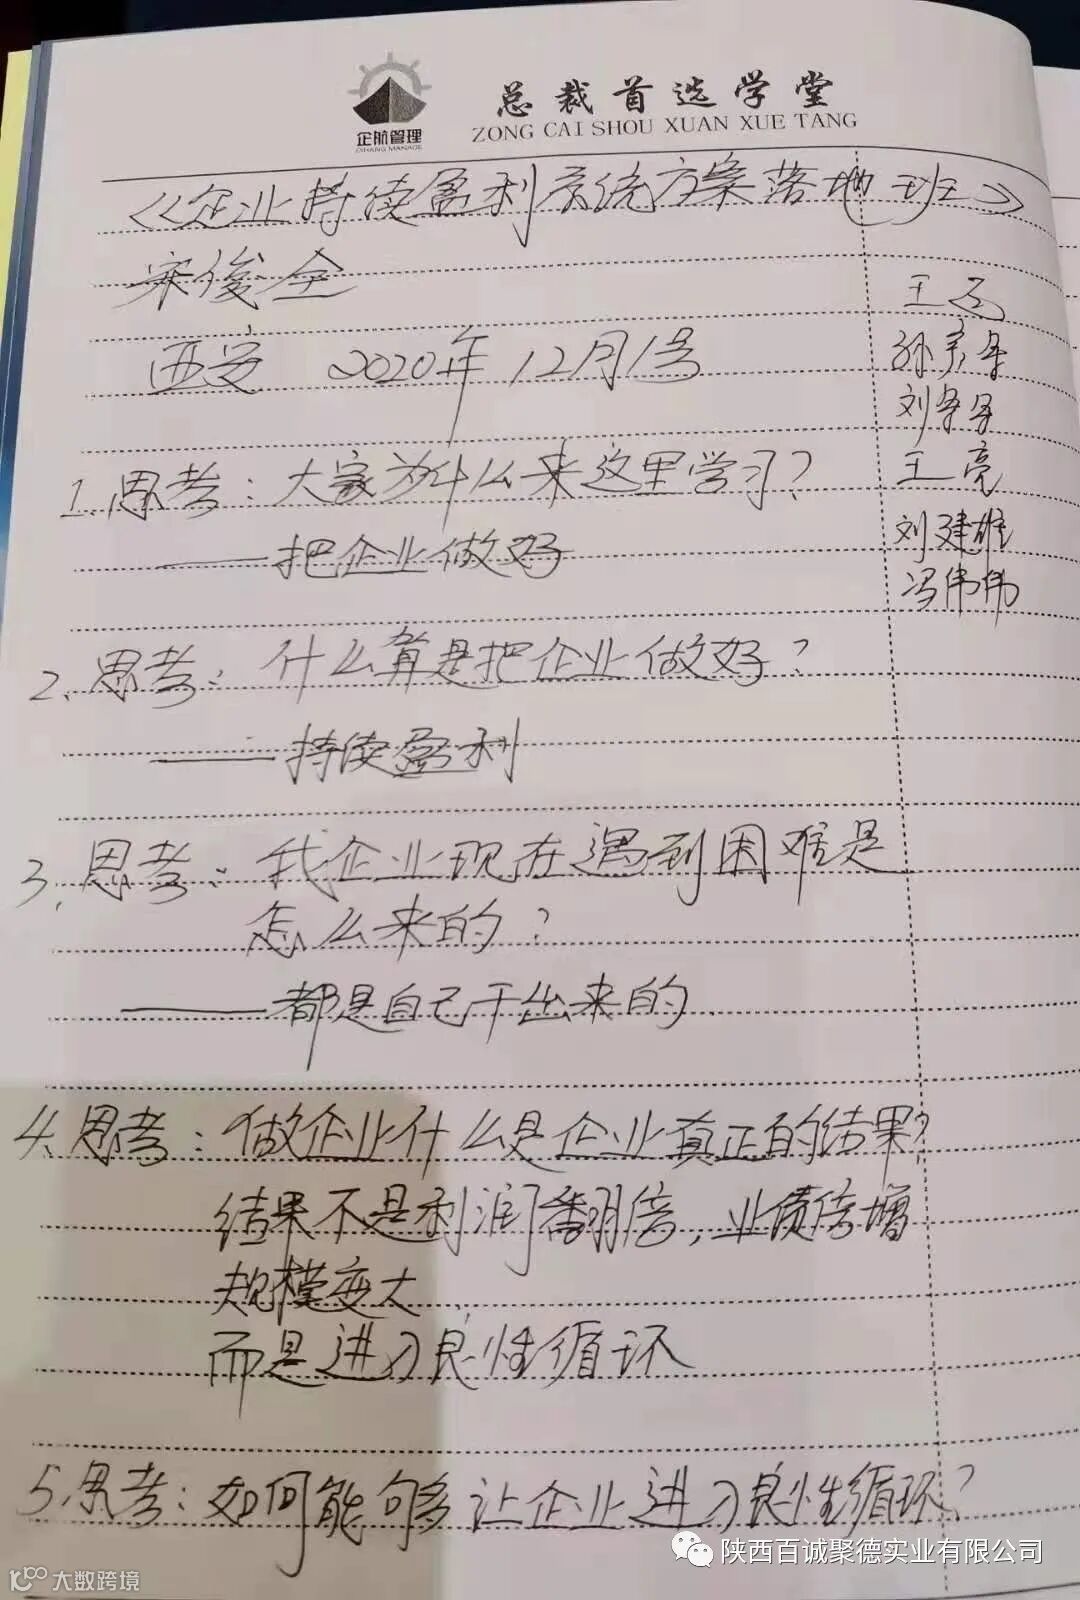 企航管理
QIHANG MANAGE
总裁首选学堂
ZONG CAI SHOU XUAN XUE TANG
《企业持续盈利系统方案落地班》
宋俊全
西安 2020年12月1号
王
孙
刘
王亮
刘建雄
冯伟伟
1.思考：大家为什么来这里学习？
——把企业做好
2、思考：什么算是把企业做好？
——持续盈利
3、思考：我企业现在遇到困难是
怎么来的？
——都是自己干出来的
4、思考：做企业什么是企业真正的结果？
结果不是利润翻倍，业绩倍增
规模变大
而是进入良性循环
5.思考：如何能够让企业进入良性循环？
陕西百诚聚德实业有限公司
大数跨境